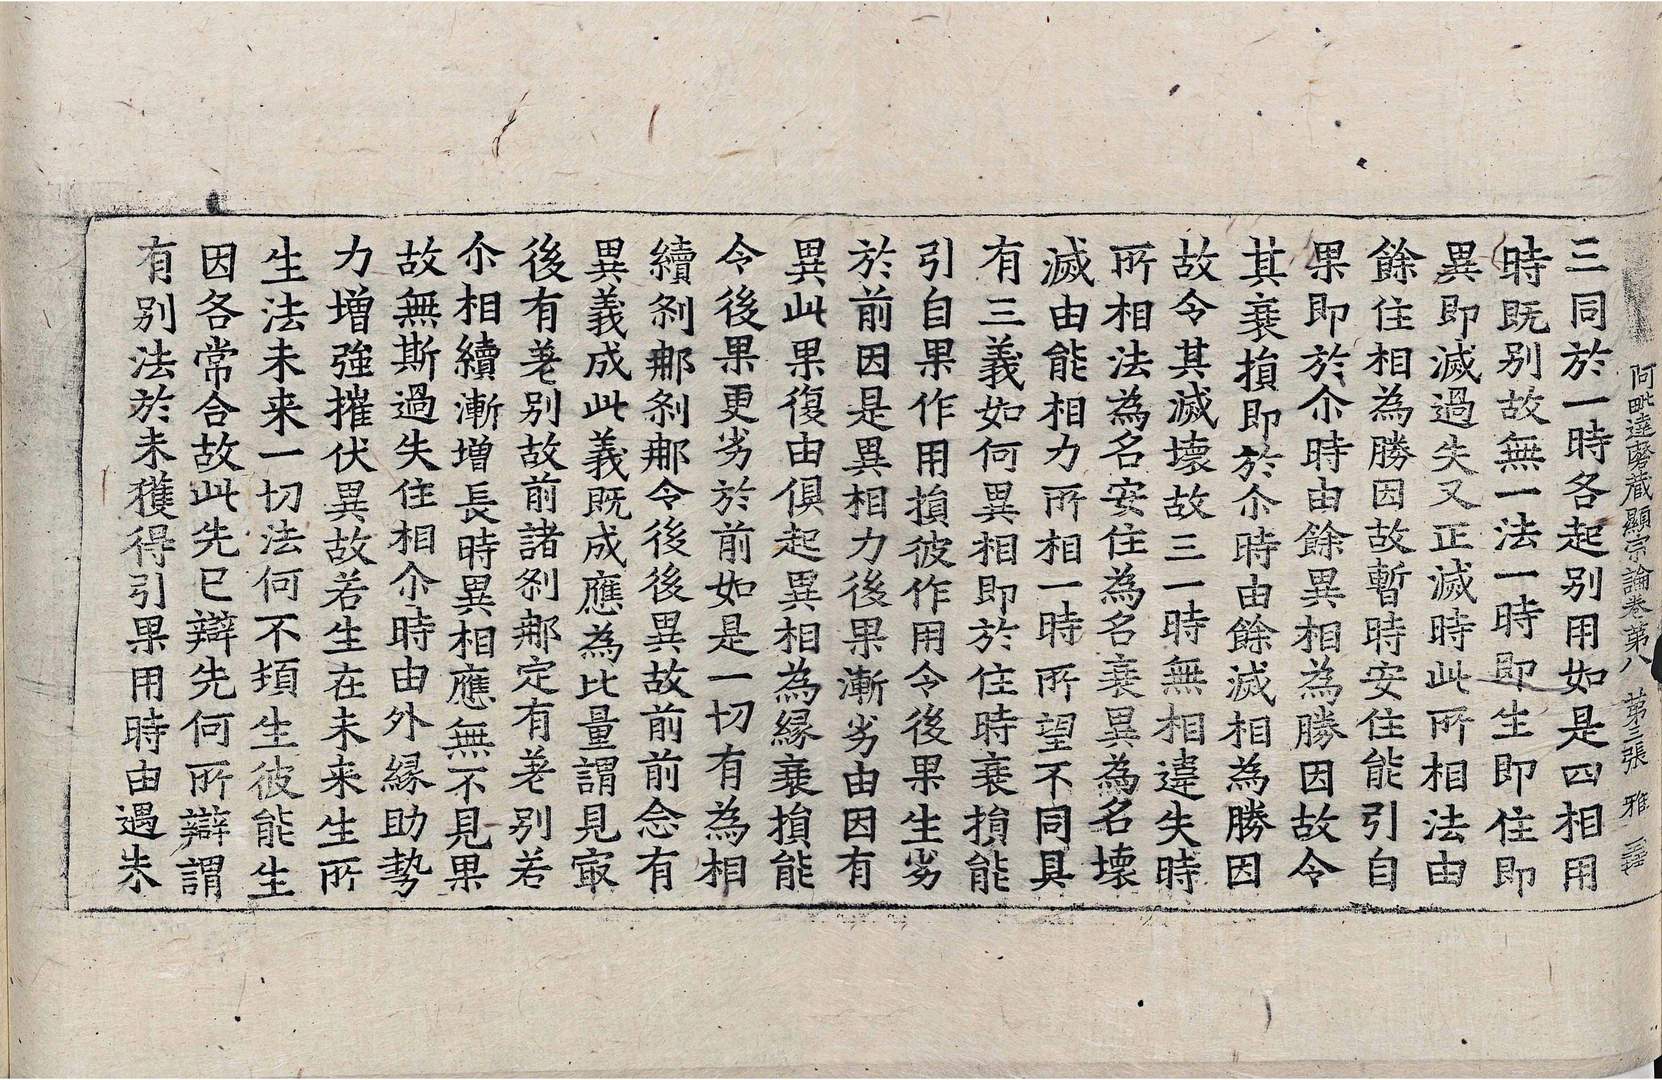 阿毗達磨藏顯宗論卷第八　第三張　雅
三同於一時各起別用如是四相用
時既别故無一法一時即生即住即
異即滅過失又正滅時此所相法由
餘住相為勝因故暫時安住能引自
果即於尒時由餘異相為勝因故令
其衰損即於尒時由餘滅相為勝因
故令其滅壞故三一時無相違失時
所相法為名安住為名衰異為名壞
滅由能相力所相一時所望不同具
有三義如何異相即於住時衰損能
引自果作用損彼作用令後果生劣
於前因是異相力後果漸劣由因有
異此果復由俱起異相為縁衰損能
令後果更劣於前如是一切有為相
續剎那剎那令後後異故前前念有
異義成此義既成應為比量謂見㝡
後有差别故前諸剎那定有差別若
尒相續漸增長時異相應無不見果
故無斯過失住相尒時由外縁助勢
力增強摧伏異故若生在未来生所
生法未来一切法何不頓生彼能生
因各常合故此先已辯先何所辯謂
有别法於未獲得引果用時由遇未